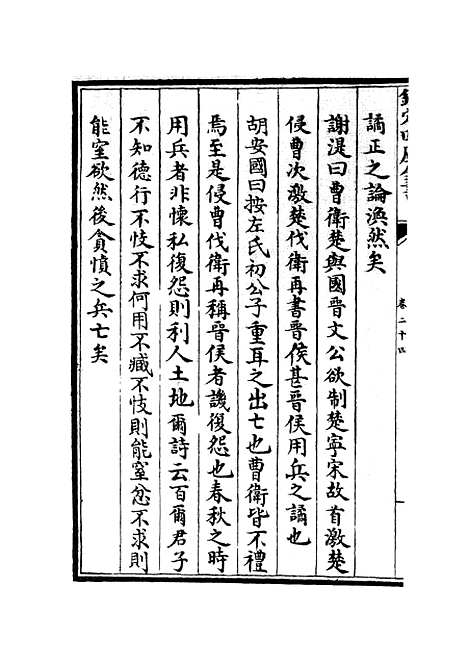 欽定四庫全書
卷二十四
譎正之論渙然矣
謝湜曰曹衛楚與國晉文公欲制楚寧宋故首激楚
侵曹次激楚伐衛再書晉侯甚晉侯用兵之譎也
胡安國曰按左氏初公子重耳之出亡也曹衛皆不禮
焉至是侵曹伐衛再稱晉侯者譏復怨也春秋之時
用兵者非懐私復怨則利人土地爾詩云百爾君子
不知德行不忮不求何用不臧不忮則能窒忿不求則
能窒欲然後貪憤之兵亡矣